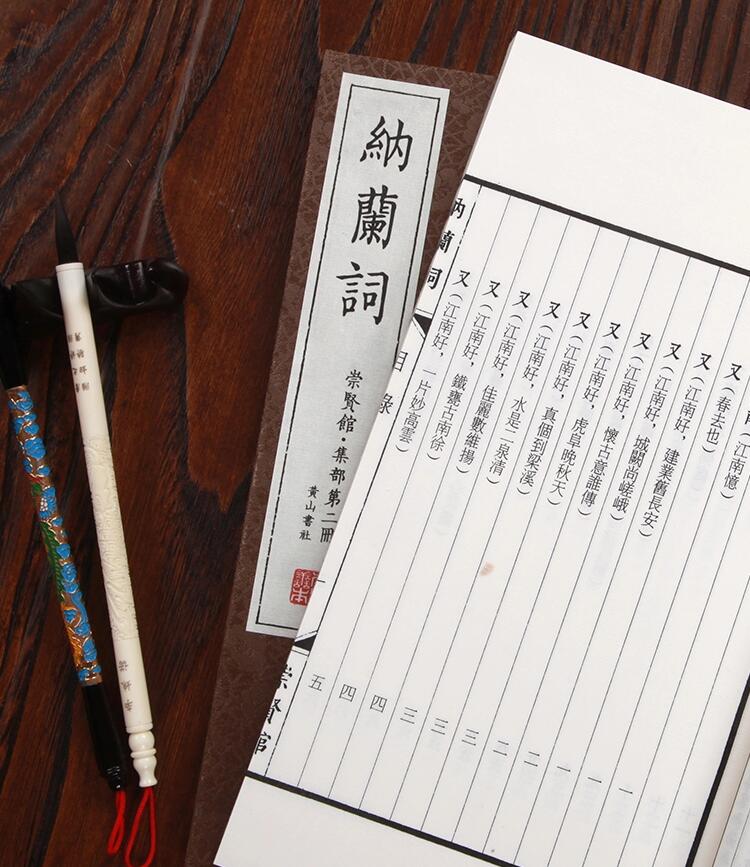 納蘭詞
崇賢館·集部第二冊
黃山書社
（江南憶） 一
又（春去也） 一
又（江南好，建業舊長安） 一
又（江南好，城闕尚嵯峨） 二
又（江南好，懷古意誰傳） 二
又（江南好，虎阜晚秋天） 三
又（江南好，真個到梁溪） 三
又（江南好，水是二泉清） 三
又（江南好，佳麗數維揚） 四
又（江南好，鐵甕古南徐） 四
又（江南好，一片妙高雲） 五
納蘭詞 目錄 崇賢館